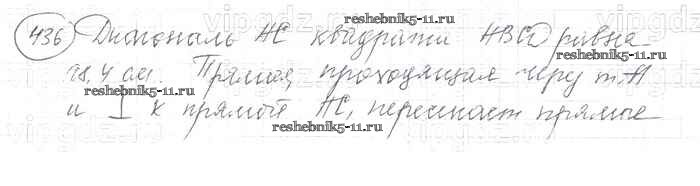 436 Диагональ AC квадрата ABCD равна
18,4 см. Прямая, проходящая через т.A
и ⊥ к прямой AC, пересекает прямые
reshebnik5-11.ru
reshebnik5-11.ru
reshebnik5-11.ru
reshebnik5-11.ru